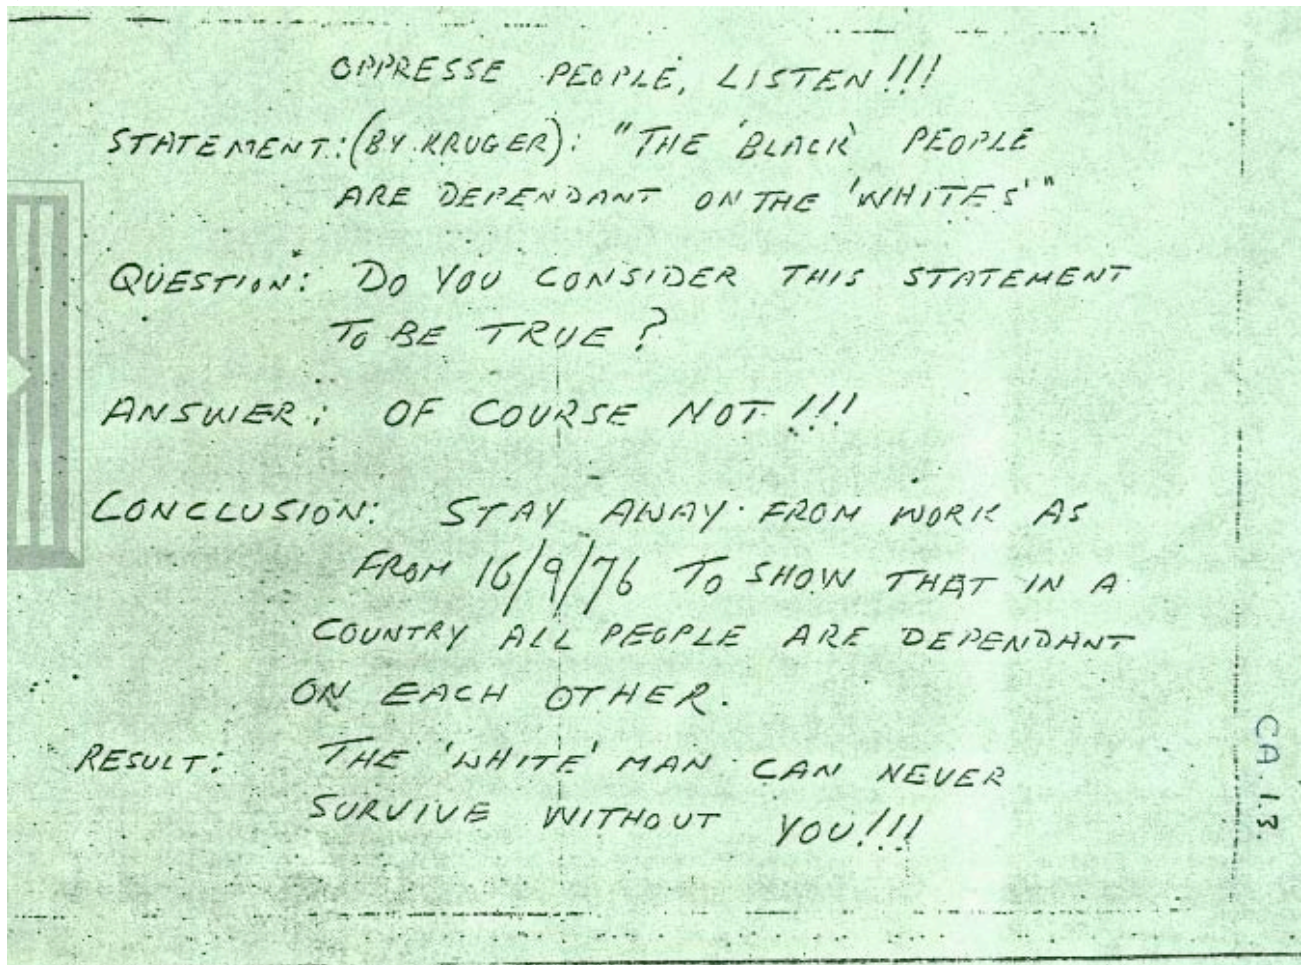 OPPRESSE PEOPLE, LISTEN!!!
STATEMENT:(BY KRUGER): "THE 'BLACK' PEOPLE
ARE DEPENDANT ON THE 'WHITES'"
QUESTION: DO YOU CONSIDER THIS STATEMENT
TO BE TRUE?
ANSWER: OF COURSE NOT!!!
CONCLUSION: STAY AWAY FROM WORK AS
FROM 16/9/76 TO SHOW THAT IN A
COUNTRY ALL PEOPLE ARE DEPENDANT
ON EACH OTHER.
RESULT: THE 'WHITE' MAN CAN NEVER
SURVIVE WITHOUT YOU!!!
CA.1.3.